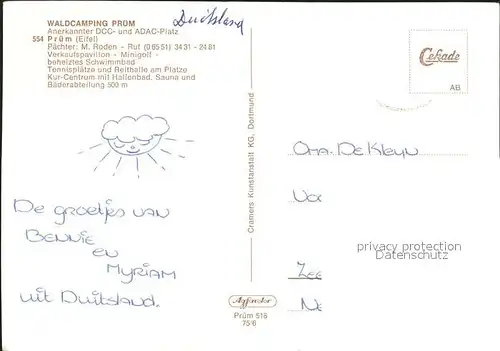 WALDCAMPING PRÜM
Duitsland
Anerkannter DCC- und ADAC-Platz
554 Prüm (Eifel)
Pächter: M. Roden - Ruf (0 65 51) 34 31 - 24 81
Verkaufspavillon - Minigolf -
beheiztes Schwimmbad
Tennisplätze und Reithalle am Platze
Kur-Centrum mit Hallenbad, Sauna und
Bäderabteilung 500 m
Cekade
AB
De groetjes van
Bennie
en
Myriam
uit Duitsland.
Cramers Kunstanstalt KG, Dortmund
Oma. De Kleyn
Voo
Zee
Ne
privacy protection
AnsichtskartenCenter
Prüm 516
75/6